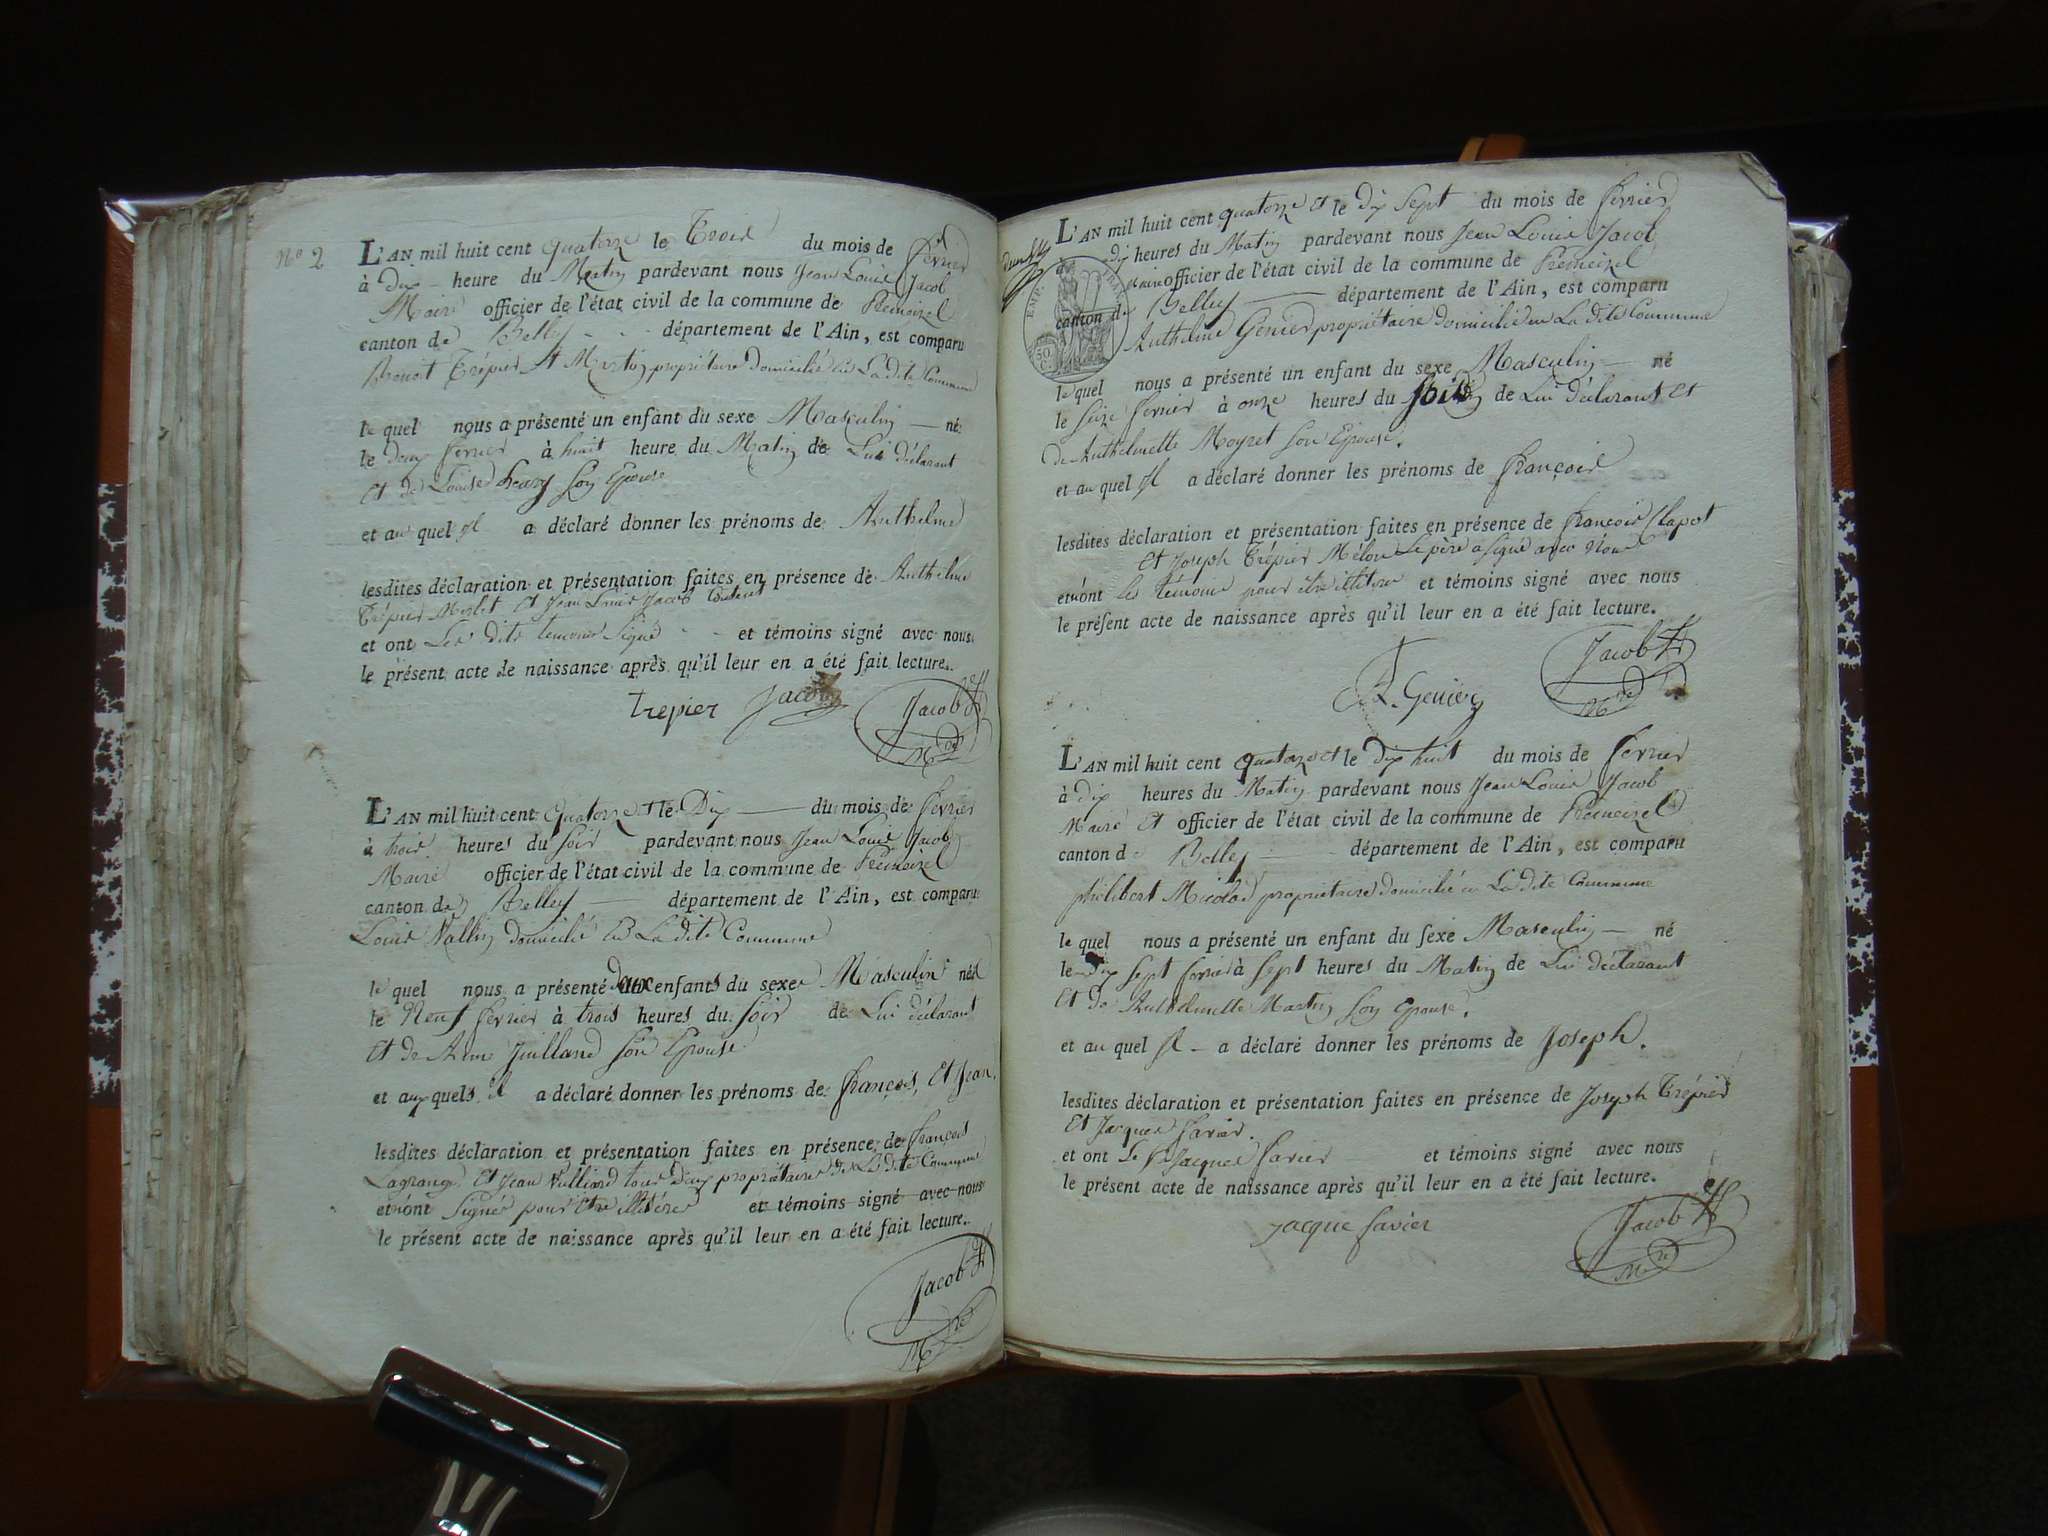 N° 2
L'AN mil huit cent quatorze le Trois du mois de fevrier
à dix heure du Matin pardevant nous Jean Louis Jacob
Maire officier de l'état civil de la commune de Premeizel
canton de Belley département de l'Ain, est comparu
Benoit Trépier propriétaire domicilié en La dite Commune
le quel nous a présenté un enfant du sexe Masculin né
le deux fevrier à huit heure du Matin de Lui déclarant
Et de Louise Son Epouse
et au quel il a déclaré donner les prénoms de Anthelme
lesdites déclaration et présentation faites en présence de Anthelme
Trépier Et Jean Louis Jacob
et ont Les dits temoins Signé et témoins signé avec nous
le présent acte de naissance après qu'il leur en a été fait lecture.
trepier Jacob Jacob
M re
L'AN mil huit cent quatorze et le Dix du mois de fevrier
à trois heures du soir pardevant nous Jean Louis Jacob
Maire officier de l'état civil de la commune de Premeizel
canton de Belley département de l'Ain, est comparu
Louis Vallin domicilié En La dite Commune
le quel nous a présenté deux enfants du sexe Masculin nés
le Neuf fevrier à trois heures du soir de Lui déclarant
Et de Anne Juilland Son Epouse
et aux quels il a déclaré donner les prénoms de françois, Et Jean.
lesdites déclaration et présentation faites en présence de françois
Lagrange Et Jean Vulliard tous Deux propriétaire de La dite Commune
et n'ont Signés pour Etre illitérés et témoins signé avec nous
le présent acte de naissance après qu'il leur en a été fait lecture.
Jacob
M re
L'AN mil huit cent quatorze Et le dix Sept du mois de fevrier
à dix heures du Matin pardevant nous Jean Louis Jacob
Maire officier de l'état civil de la commune de Premeizel
canton de Belley département de l'Ain, est comparu
EMP. FRAN.
50 C
Anthelme Genier propriétaire domicilié en La dite Commune
le quel nous a présenté un enfant du sexe Masculin né
le Seize fevrier à onze heures du soir de Lui déclarant Et
de Anthelmette Moyret Son Epouse.
et au quel il a déclaré donner les prénoms de françois
lesdites déclaration et présentation faites en présence de françois Clapot
Et Joseph Trépier Mélon Le père a signé avec Nous
et n'ont les témoins pour être illitérés et témoins signé avec nous
le présent acte de naissance après qu'il leur en a été fait lecture.
A. Genier Jacob
M re
L'AN mil huit cent quatorze et le Dix huit du mois de fevrier
à dix heures du Matin pardevant nous Jean Louis Jacob
Maire Et officier de l'état civil de la commune de Premeizel
canton de Belley département de l'Ain, est comparu
philibert Micolas propriétaire domicilié en La dite Commune
le quel nous a présenté un enfant du sexe Masculin né
le Dix Sept fevrier à Sept heures du Matin de Lui déclarant
Et de Anthelmette Martin Son Epouse.
et au quel il a déclaré donner les prénoms de Joseph.
lesdites déclaration et présentation faites en présence de Joseph Trépier
Et Jacques Savier.
et ont Le Jacques Savier et témoins signé avec nous
le présent acte de naissance après qu'il leur en a été fait lecture.
jacque Savier Jacob
M re